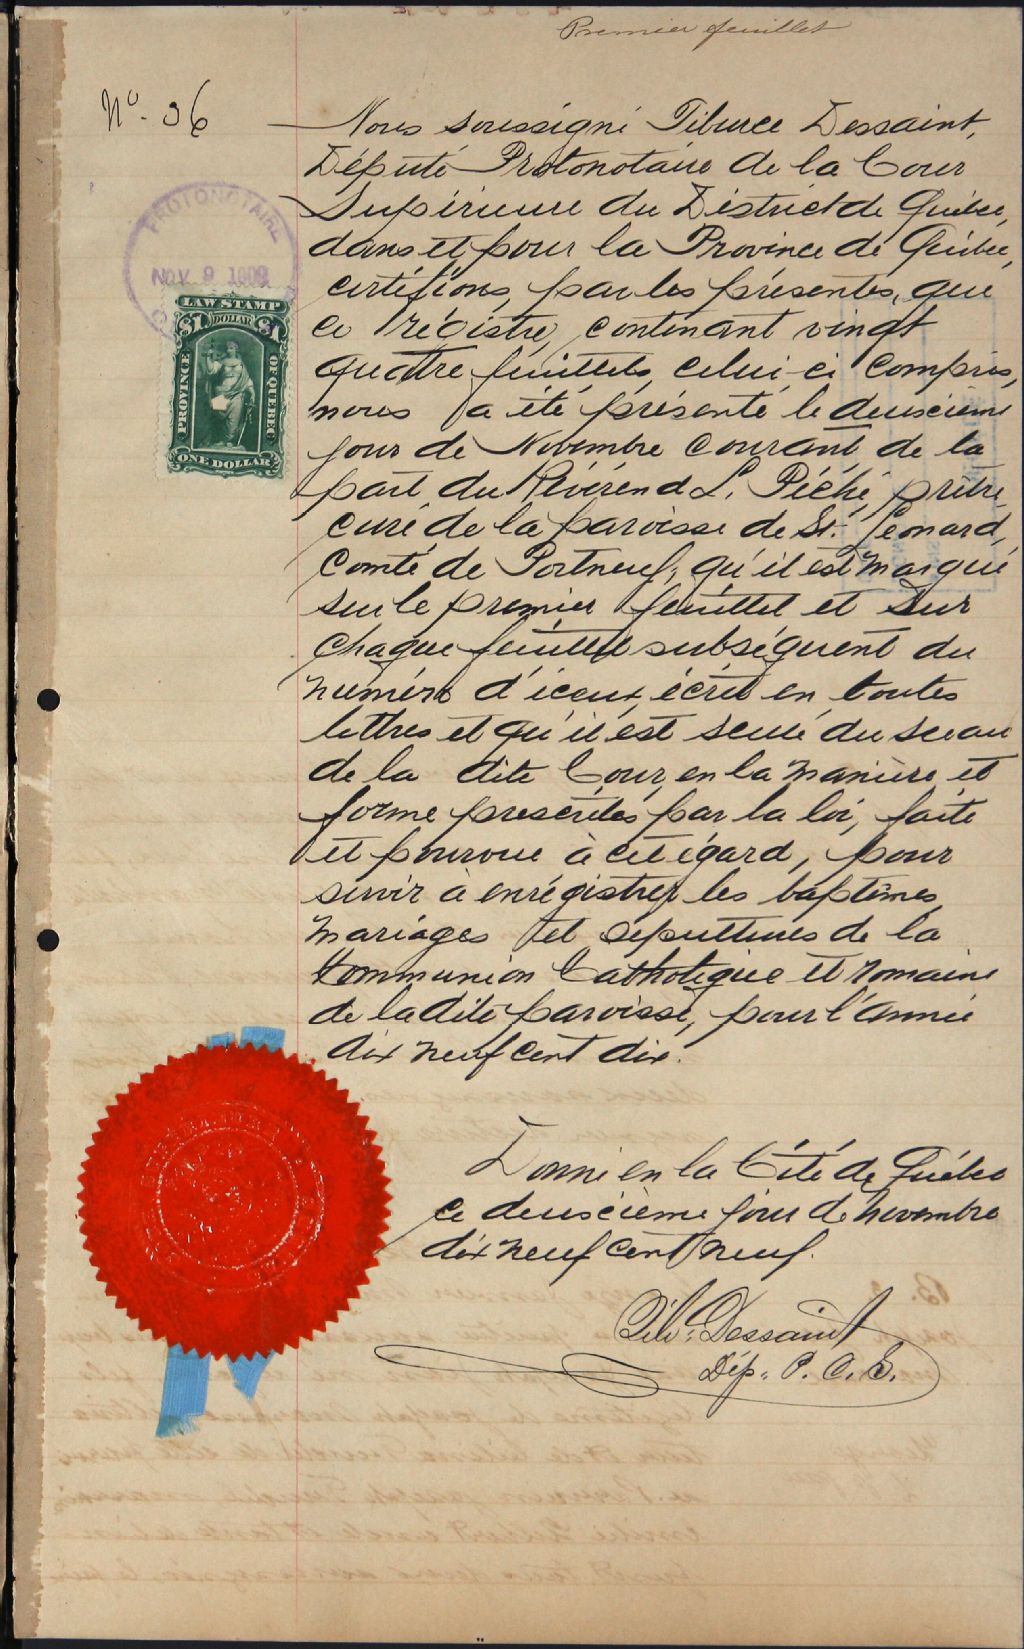 Premier feuillet
No. 36
Nous soussigné Tiburce Dessaint,
Député Protonotaire de la Cour
Supérieure du District de Québec,
dans et pour la Province de Québec,
certifions, par les présentes, que
ce régistre, contenant vingt
quatre feuillets, celui-ci compris,
nous a été présenté le deuxième
jour de Novembre courant de la
part du Révérend L. Péché, prêtre,
curé de la paroisse de St. Léonard,
Comté de Portneuf; qu'il est marqué
sur le premier feuillet et sur
chaque feuillet subséquent du
numéro d'iceux, écrit en toutes
lettres et qu'il est scellé du sceau
de la dite Cour, en la manière et
forme prescrites par la loi, faite
et pourvue à cet égard, pour
servir à enrégistrer les baptêmes,
mariages et sépultures de la
Communion Catholique et romaine
de la dite paroisse, pour l'année
dix neuf cent dix.
PROTONOTAIRE
NOV 9 1909
LAW STAMP
$1 DOLLAR $1
PROVINCE OF QUEBEC
ONE DOLLAR
Donné en la Cité de Québec
ce deuxième jour de novembre
dix neuf cent neuf.
Tib. Dessaint
Dép. P. C. S.